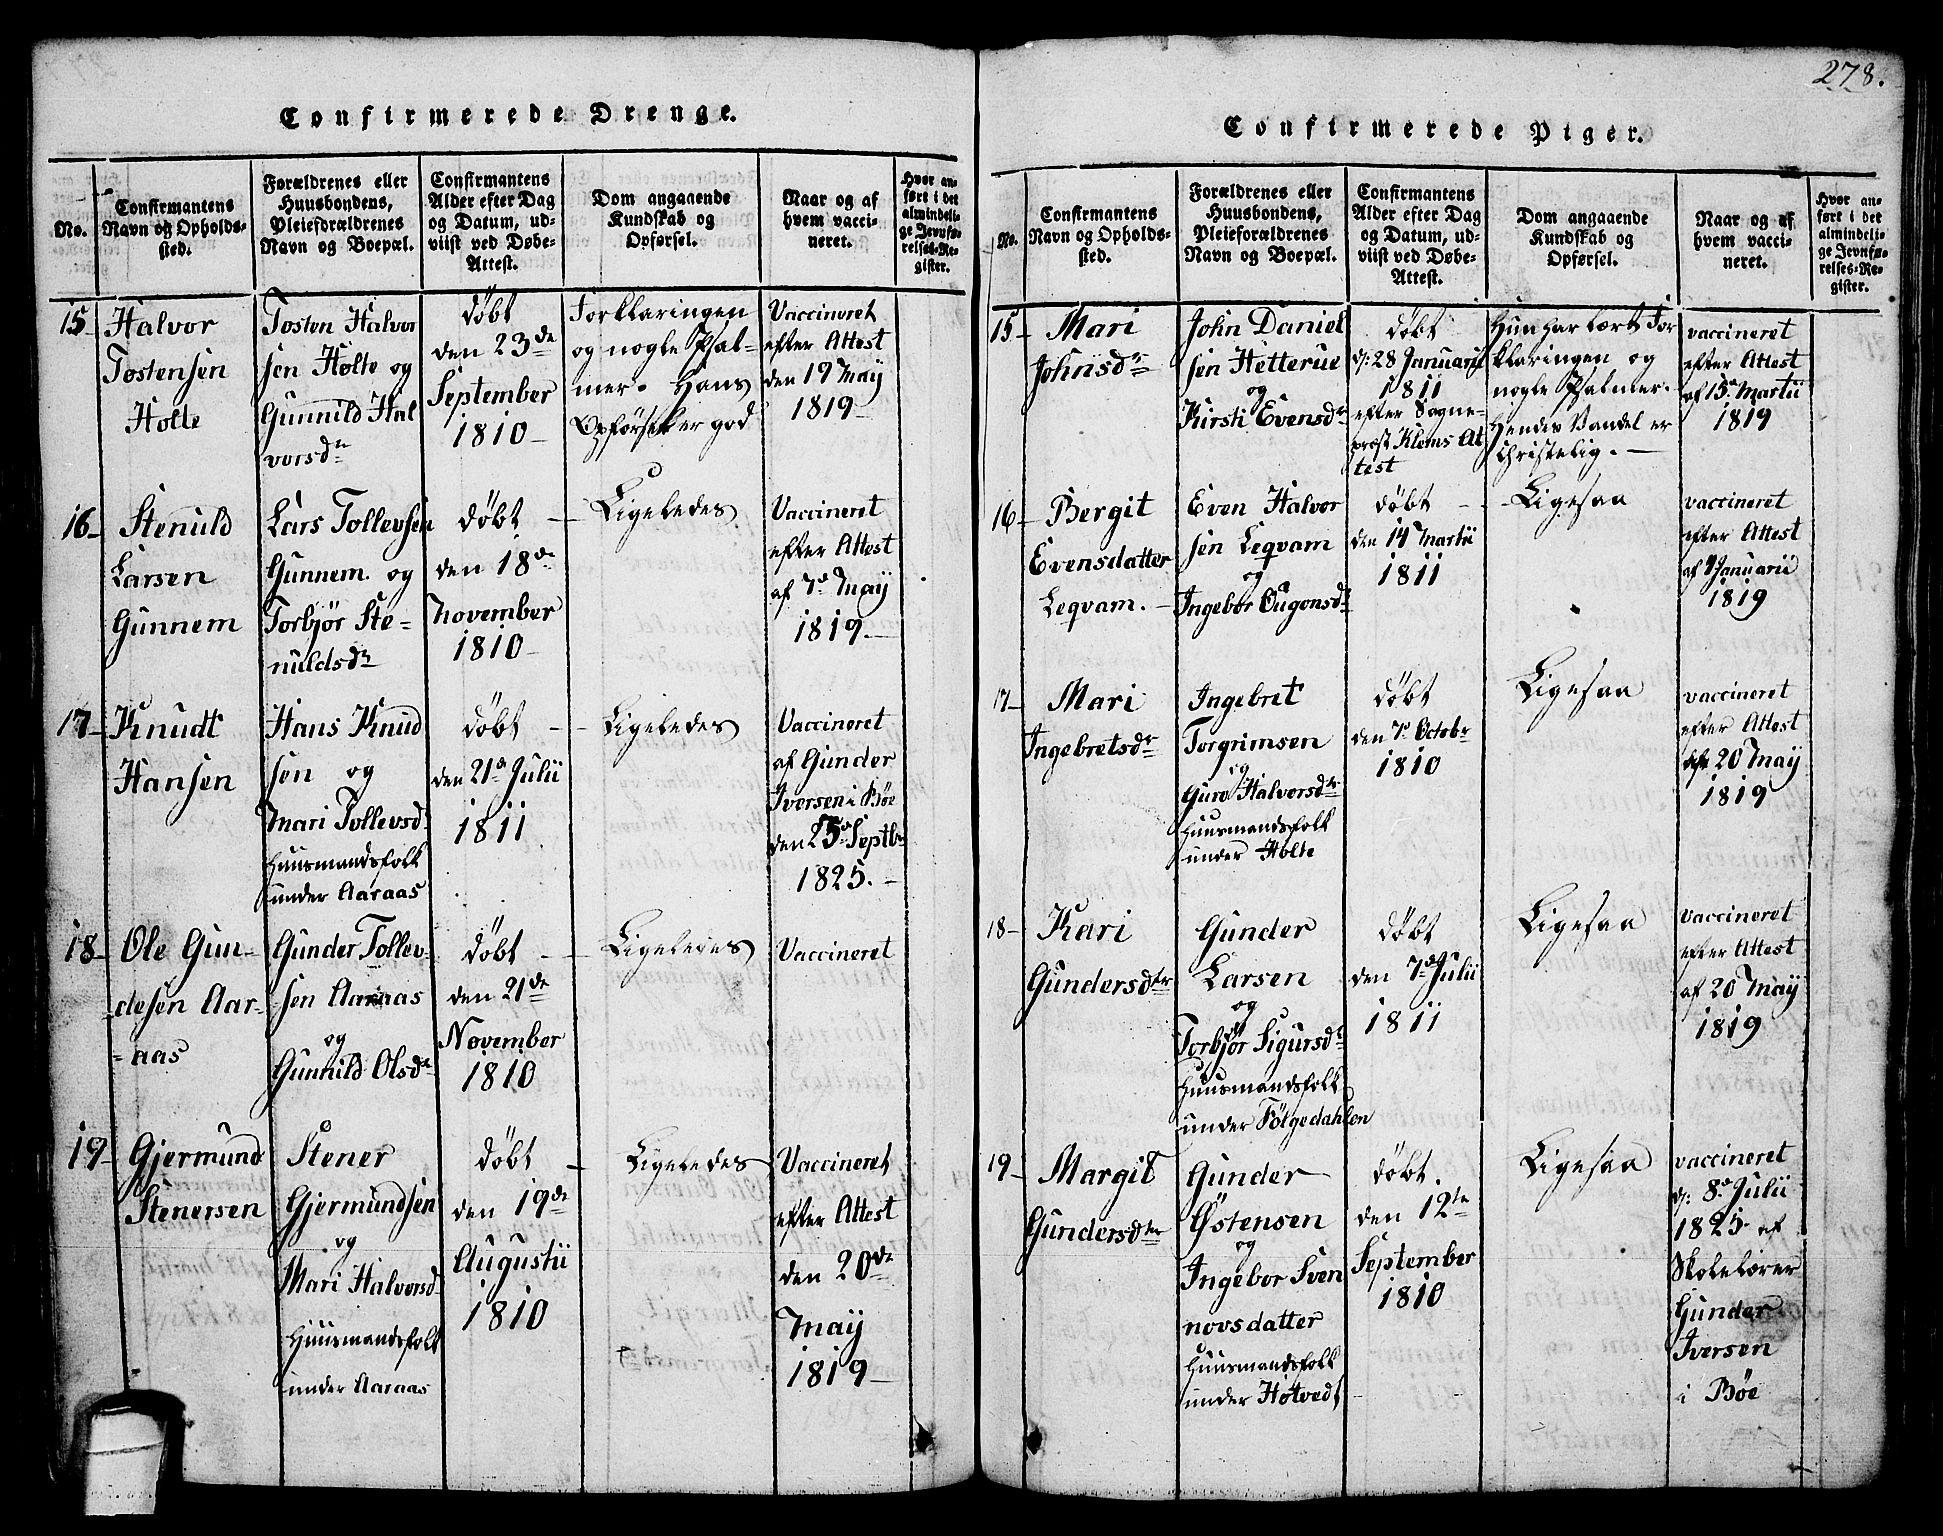 278.
Confirmerede Drenge.
No.
Confirmantens
Navn og Opholds-
sted.
Forældrenes eller
Huusbondens,
Pleiefordrældrenes
Navn og Boepæl.
Confirmantens
Alder efter Dag
og Datum, ud-
viist ved Døbe-
Attest.
Dom angaaende
Kundskab og
Opførsel.
Naar og af
hvem vacci-
neret.
Hvor an-
ført i det
almindeli-
ge Jevnfø-
relses-Re-
gister.
15
Halvor
Tostensen
Holte
Tosten Halvor
sen Holte og
Gunnild Hal
vorsdr
døbt
den 23de
September
1810
Forklaringen
og nogle Psal-
mer. Hans
Opførsel er god
Vaccineret
efter Attest
den 19 May
1819
16
Stenuld
Larsen
Gunnem
Lars Tollevsen
Gunnem og
Torbjør Ste-
nuldsdr
døbt
den 18de
November
1810
Ligeledes
Vaccineret
efter Attest
af 7de May
1819
17
Knudt
Hansen
Hans Knud
sen og
Mari Tollevsd
Huusmandsfolk
under Aaraas
døbt
den 21de Julii
1811
Ligeledes
Vaccineret
af Gunder
Iversen i Bøe
den 25de Septbr
1825.
18
Ole Gun-
desen Aar-
aas
Gunder Tollev-
sen Aaraas
og
Gunnild Olsdr
døbt
den 21de
November
1810
Ligeledes
Vaccineret
19
Gjermund
Stenersen
Stener
Gjermundsen
og
Mari Halvorsd
Huusmandsfolk
under Aaraas
døbt
den 19de
Augustii
1810
Ligeledes
Vaccineret
efter Attest
den 20de
May
1819
Confirmerede Piger.
No.
Confirmantens
Navn og Opholds-
sted.
Forældrenes eller
Huusbondens,
Pleieforældrenes
Navn og Boepæl.
Confirmantens
Alder efter Dag
og Datum, ud-
viist ved Døbe-
Attest.
Dom angaaende
Kundskab og
Opførsel.
Naar og af
hvem vacci-
neret.
Hvor an-
ført i det
almindeli-
ge Jevnfø-
relses-Re-
gister.
15
Mari
Johnsdr
John Daniel
sen Hetterue
og
Kirsti Evensdr
døbt
d: 28 Januarii
1811
efter Sogne-
prest Klems At
test
Hun har lært For
klaringen og
nogle Psalmer.
Hendes Vandel er
christelig.
vaccineret
efter Attest
af 15de Martii
1819
16
Bergit
Evensdatter
Leqvam.
Even Halvor
sen Leqvam
og
Ingebor Ougonsdr
døbt
den 14 Martii
1811
Ligesaa
vaccineret
efter Attest
af Januarii
1819
17
Mari
Ingebretsdr
Ingebret
Torgrimsen
og
Guro Halvorsdtr
Huusmandsfolk
under Holte
døbt
den 7de Octobr
1810
Ligesaa
vaccineret
efter Attest
20 May
1819
18
Kari
Gundersdtr
Gunder
Larsen
og
Torbjør Sigursdr
Huusmandsfolk
under Følgedahlen
døbt
den 7de Julii
1811
Ligesaa
vaccineret
efter Attest
af 20 May
1819
19
Margit
Gundersdtr
Gunder
Østensen
og
Ingebor Sven
novsdatter
Huusmandsfolk
under Hotvedt
døbt.
den 12te
September
1810
Ligesaa
vaccineret
d: 8de Julii
1825 af
Skolelærer
Gunder
Iversen
i Bøe